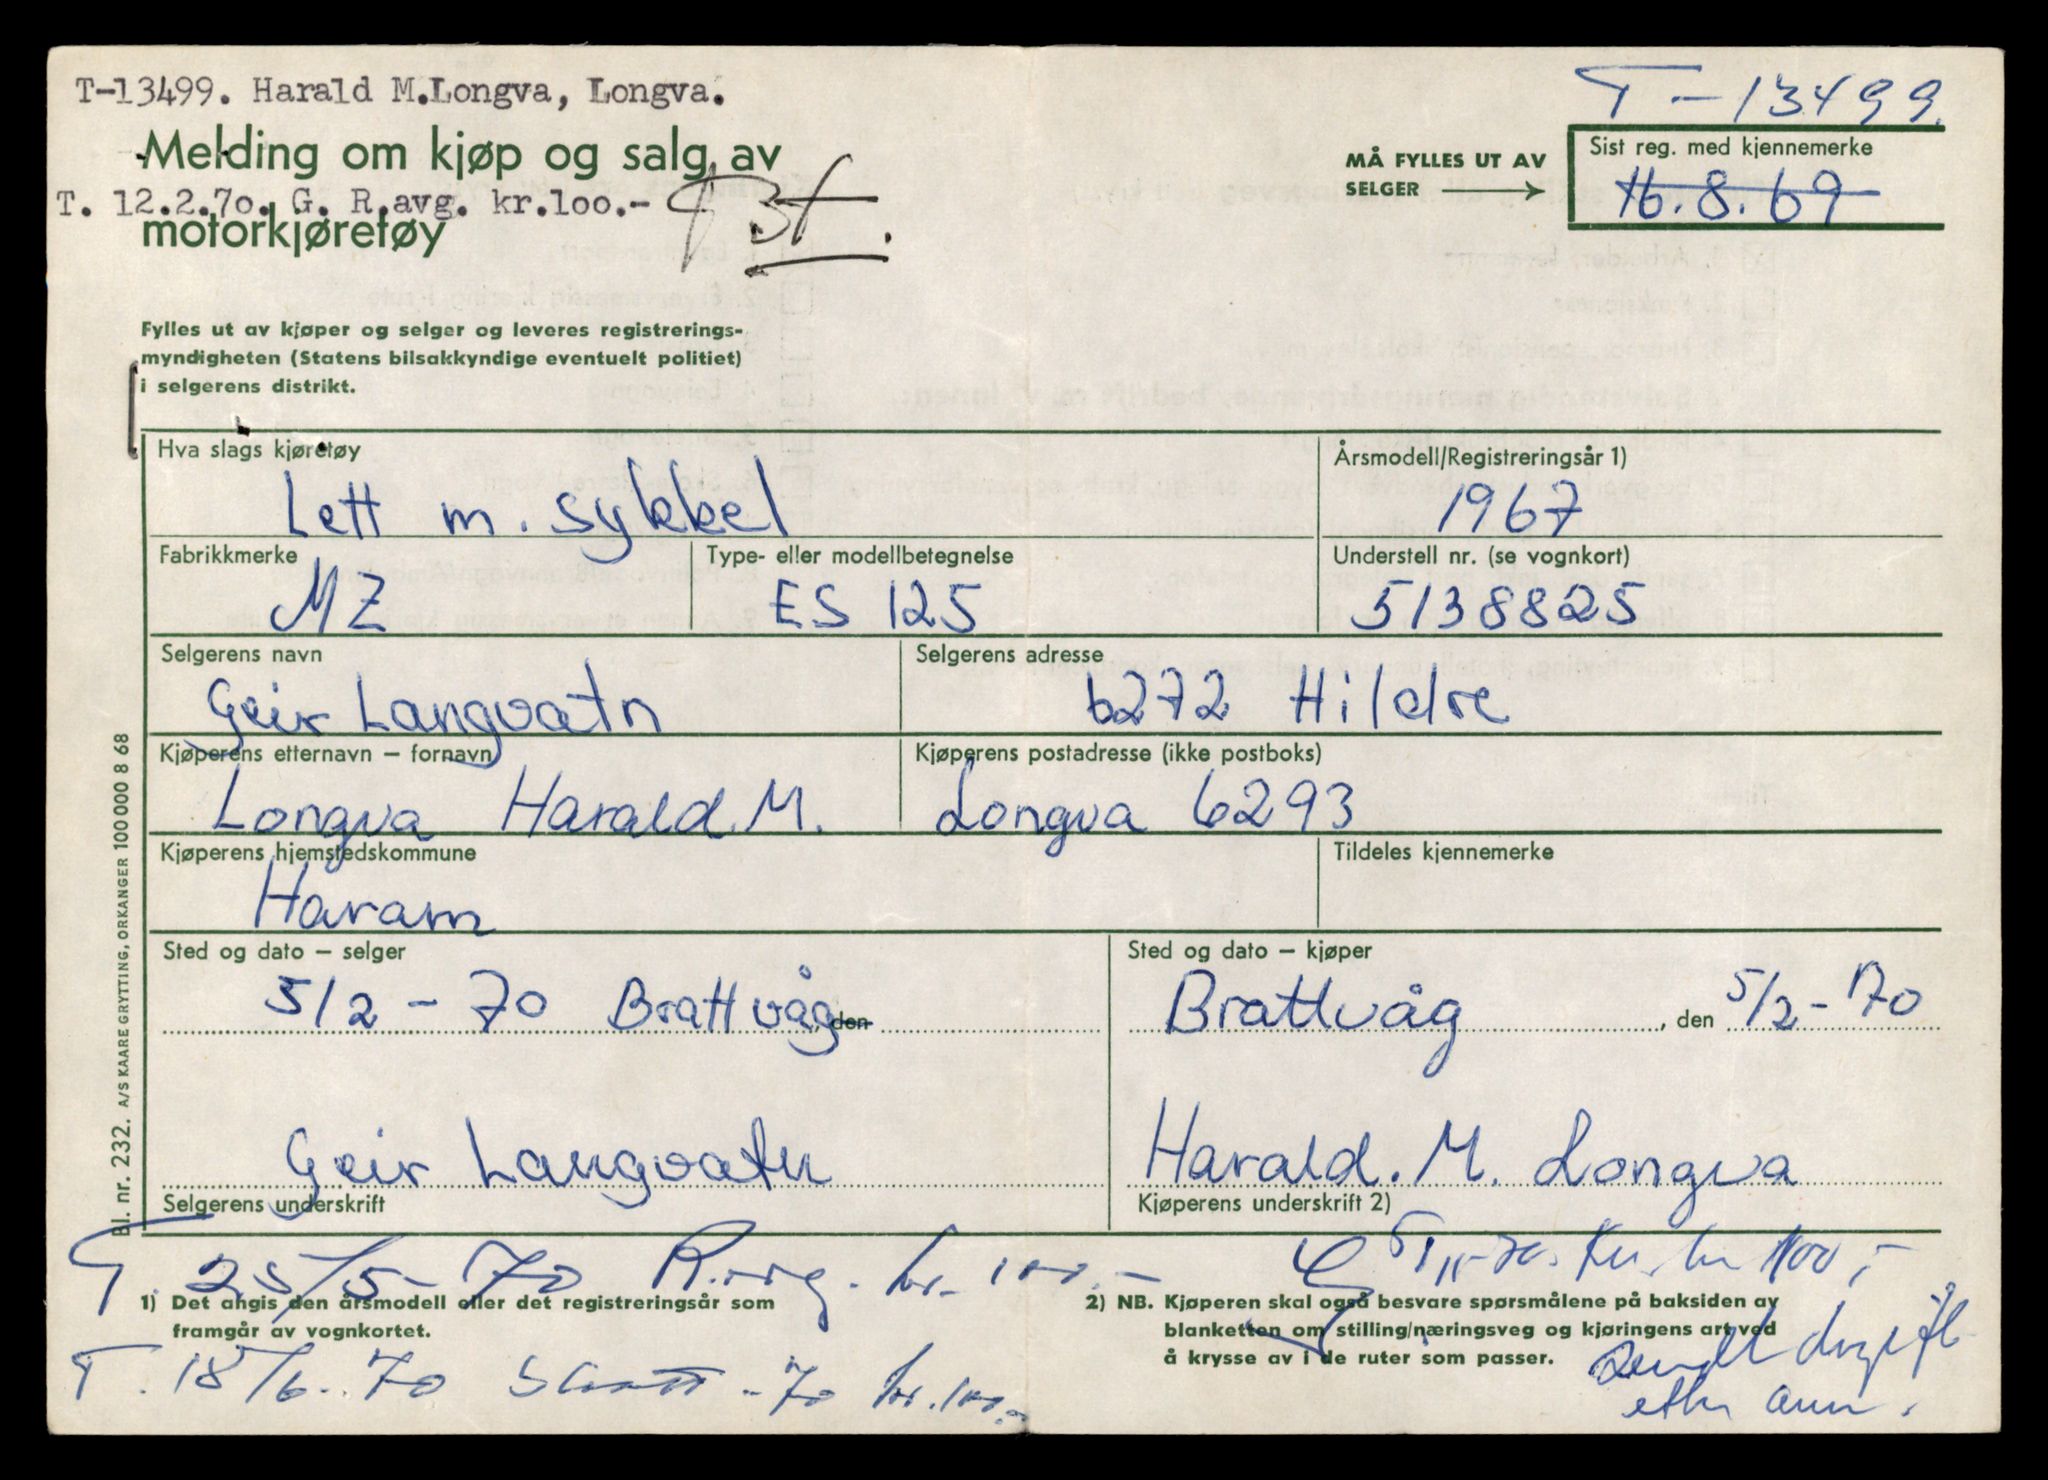 T-13499. Harald M.Longva, Longva.
T-13499.
Melding om kjøp og salg av
T. 12.2.70. G. R.avg. kr.100.-
motorkjøretøy
MÅ FYLLES UT AV
SELGER
Sist reg. med kjennemerke
16.8.69
Fylles ut av kjøper og selger og leveres registrerings-
myndigheten (Statens bilsakkyndige eventuelt politiet)
i selgerens distrikt.
Hva slags kjøretøy
Lett m. sykkel
Årsmodell/Registreringsår 1)
1967
Fabrikkmerke
MZ
Type- eller modellbetegnelse
ES 125
Understell nr. (se vognkort)
5138825
Selgerens navn
Geir Langvatn
Selgerens adresse
6272 Hildre
Kjøperens etternavn – fornavn
Longva Harald. M.
Kjøperens postadresse (ikke postboks)
Longva 6293
Kjøperens hjemstedskommune
Haram
Tildeles kjennemerke
Sted og dato – selger
5/2 - 70 Brattvåg, den
Sted og dato – kjøper
Brattvåg, den 5/2 - 70
Geir Langvatn
Selgerens underskrift
Harald. M. Longva
Kjøperens underskrift 2)
Bl. nr. 232. A/S KAARE GRYTTING, ORKANGER 100 000 8 68
T 25/5-70 R.avg. kr. 100.-
1) Det angis den årsmodell eller det registreringsår som
framgår av vognkortet.
T. 18/6-70 -70 kr.100.-
2) NB. Kjøperen skal også besvare spørsmålene på baksiden av
blanketten om stilling/næringsveg og kjøringens art ved
å krysse av i de ruter som passer.